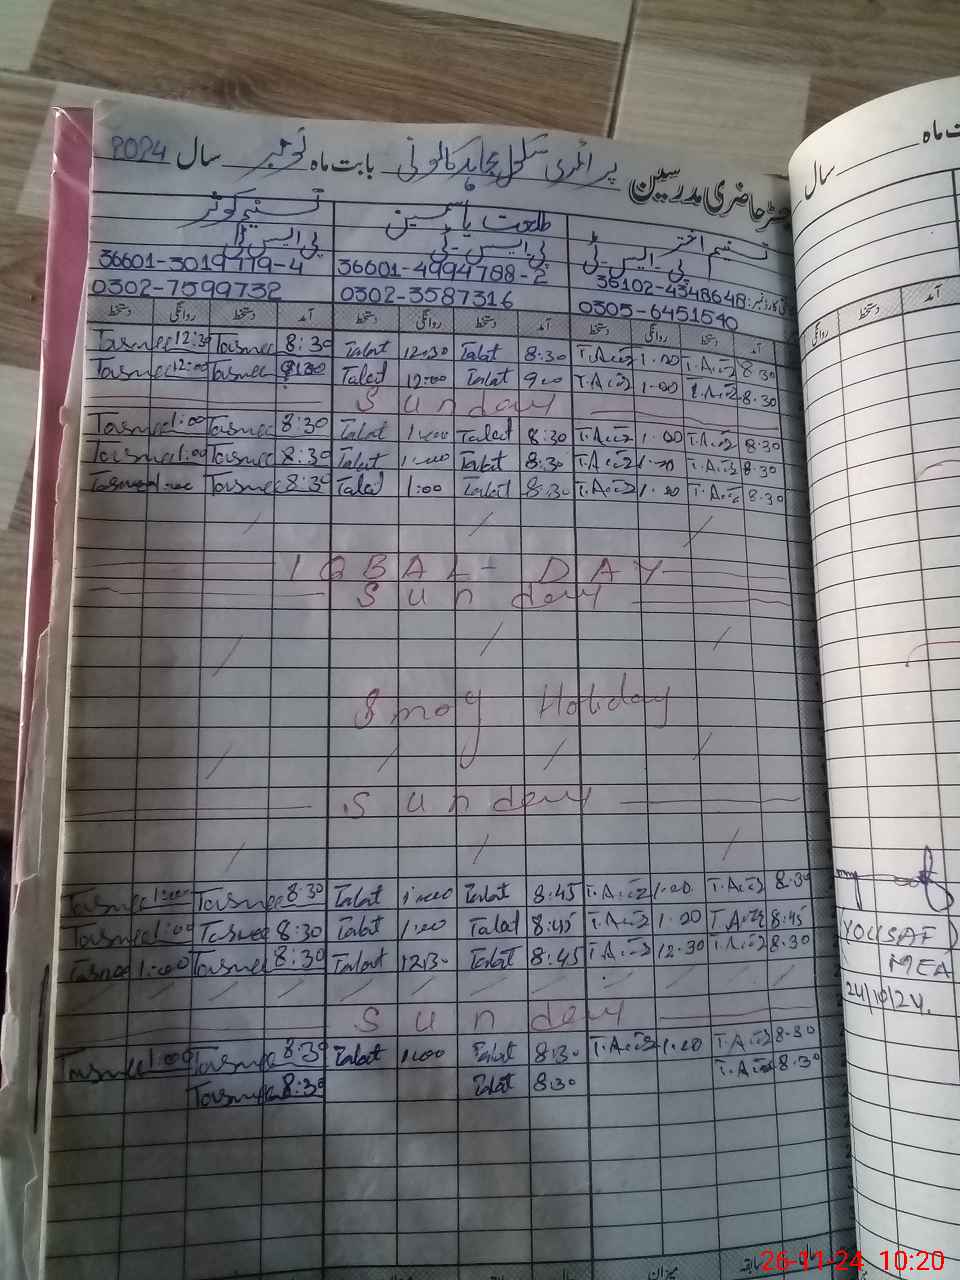 رجسٹر حاضری مدرسین پرائمری سکول مجاہد کالونی بابت ماہ نومبر سال 2024
تسنیم اختر طلعت یاسمین تسنیم کوثر
پی۔ایس۔ٹی پی۔ایس۔ٹی پی ایس ٹی
36102-4348648 36601-4994788-2 36601-3019779-4
0305-6451540 0302-3587316 0302-7599732
آمد دستخط روانگی دستخط آمد دستخط روانگی دستخط آمد دستخط روانگی دستخط
Tasnee 12:30 Tasnee 8:30 Talat 12:30 Talat 8:30 1.00 8.30
Tasnee 12:00 Tasnee Talat 12:00 Talat 9:00 1.00 8.30
Sunday
Tasnee 1:00 Tasnee 8:30 Talat 1:00 Talat 8:30 1.00 8.30
Tasnee 1:00 Tasnee 8:30 Talat 1:00 Talat 8:30 1.00 8.30
Tasnee 1:00 Tasnee 8:30 Talat 1:00 Talat 8:30 1.00 8.30
IQBAL-DAY
Sunday
Smog Holiday
Sunday
Tasnee 1:00 Tasnee 8:30 Talat 1:00 Talat 8:45 1.00 8.30
Tasnee 1:00 Tasnee 8:30 Talat 1:00 Talat 8:45 1.00 8.45
Tasnee 1:00 Tasnee 8:30 Talat 12:30 Talat 8:45 12.30 8.30
Sunday
Tasnee 1:00 Tasnee 8:30 Talat 1:00 Talat 8:30 1.00 8.30
Tasnee 8:30 Talat 8:30 8.30
میزان سابقہ
ماہ سال
آمد دستخط روانگی
YOUSAF
MEA
24/10/24.
26-11-24 10:20